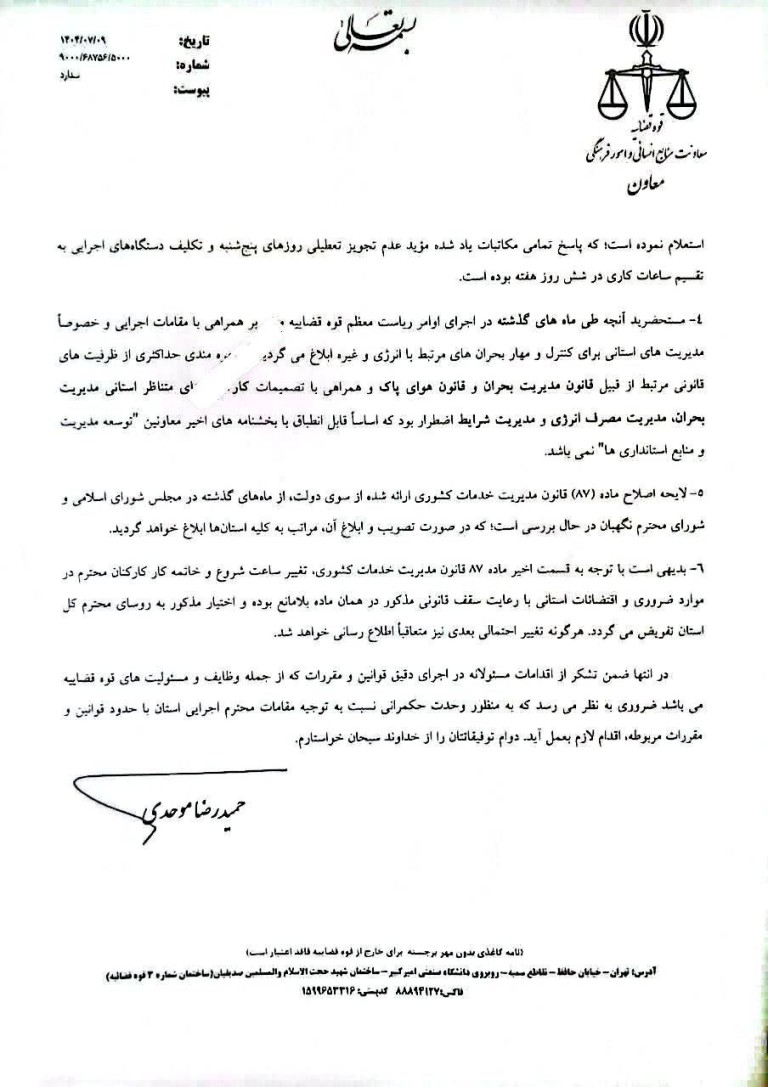 بسمه تعالی
قوه قضاییه
معاونت منابع انسانی و امور فرهنگی
معاون
تاریخ: ۱۴۰۴/۰۷/۰۹
شماره: ۹۰۰۰/۶۸۷۵۶/۵۰۰۰
پیوست: ندارد
استعلام نموده است؛ که پاسخ تمامی مکاتبات یاد شده مؤید عدم تجویز تعطیلی روزهای پنج‌شنبه و تکلیف دستگاه‌های اجرایی به
تقسیم ساعات کاری در شش روز هفته بوده است.
٤- مستحضرید آنچه طی ماه های گذشته در اجرای اوامر ریاست معظم قوه قضاییه بر همراهی با مقامات اجرایی و خصوصاً
مدیریت های استانی برای کنترل و مهار بحران های مرتبط با انرژی و غیره ابلاغ می مندی حداکثری از ظرفیت های
قانونی مرتبط از قبیل قانون مدیریت بحران و قانون هوای پاک و همراهی با تصمیمات متناظر استانی مدیریت
بحران، مدیریت مصرف انرژی و مدیریت شرایط اضطرار بود که اساساً قابل انطباق با بخشنامه های اخیر معاونین "توسعه مدیریت
و منابع استانداری ها" نمی باشد.
٥- لایحه اصلاح ماده (۸۷) قانون مدیریت خدمات کشوری ارائه شده از سوی دولت، از ماه‌های گذشته در مجلس شورای اسلامی و
شورای محترم نگهبان در حال بررسی است؛ که در صورت تصویب و ابلاغ آن، مراتب به کلیه استان‌ها ابلاغ خواهد گردید.
٦- بدیهی است با توجه به قسمت اخیر ماده ۸۷ قانون مدیریت خدمات کشوری، تغییر ساعت شروع و خاتمه کار کارکنان محترم در
موارد ضروری و اقتضائات استانی با رعایت سقف قانونی مذکور در همان ماده بلامانع بوده و اختیار مذکور به روسای محترم کل
استان تفویض می گردد. هرگونه تغییر احتمالی بعدی نیز متعاقباً اطلاع رسانی خواهد شد.
در انتها ضمن تشکر از اقدامات مسئولانه در اجرای دقیق قوانین و مقررات که از جمله وظایف و مسئولیت های قوه قضاییه
می باشد ضروری به نظر می رسد که به منظور وحدت حکمرانی نسبت به توجیه مقامات محترم اجرایی استان با حدود قوانین و
مقررات مربوطه، اقدام لازم بعمل آید. دوام توفیقاتتان را از خداوند سبحان خواستارم.
حمیدرضا موحدی
(نامه کاغذی بدون مهر برجسته برای خارج از قوه قضاییه فاقد اعتبار است)
آدرس: تهران- خیابان حافظ - تقاطع سمیه - روبروی دانشگاه صنعتی امیرکبیر- ساختمان شهید حجت الاسلام والمسلمین صدیقیان(ساختمان شماره ۳ قوه قضائیه)
فاکس: ۸۸۸۹۴۱۲۷ کدپستی: ۱۵۹۹۶۵۳۳۱۶